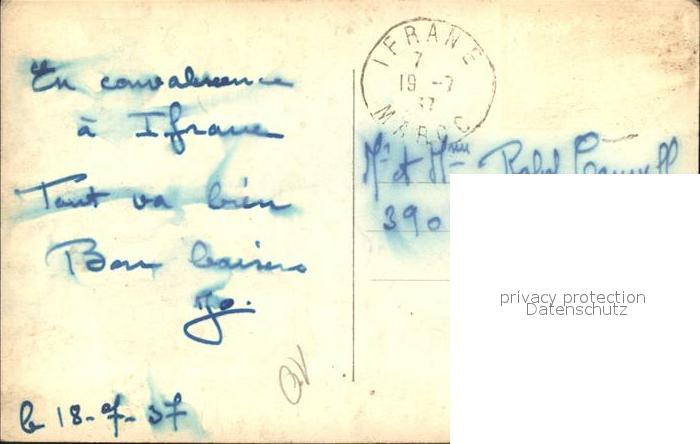 En convalescence
à Ifrane
Tout va bien
Bons baisers
Jo.
le 18-7-37
IFRANE
7
19 -7
37
MAROC
Mr et Mme
390
privacy protection
Datenschutz